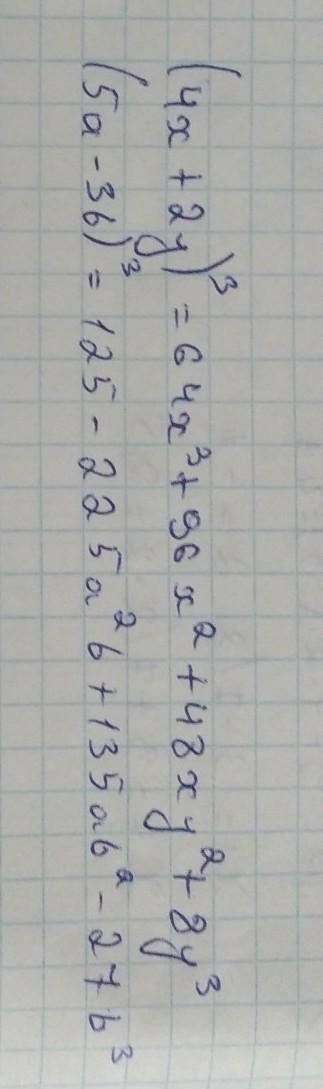 (4x + 2y)³ = 64x³ + 96x² + 48xy² + 8y³
(5a - 3b)³ = 125 - 225a²b + 135ab² - 27b³